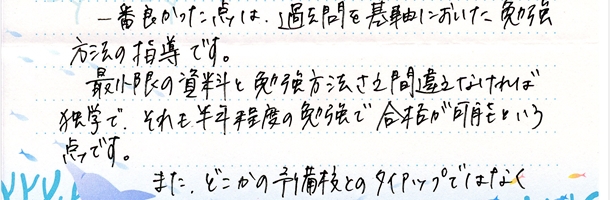 一番良かった点は、過去問を基軸においた勉強
方法の指導です。
最小限の資料と勉強方法さえ間違えなければ
独学で、それも半年程度の勉強で合格が可能という
点です。
また、どこかの予備校とのタイアップではなく